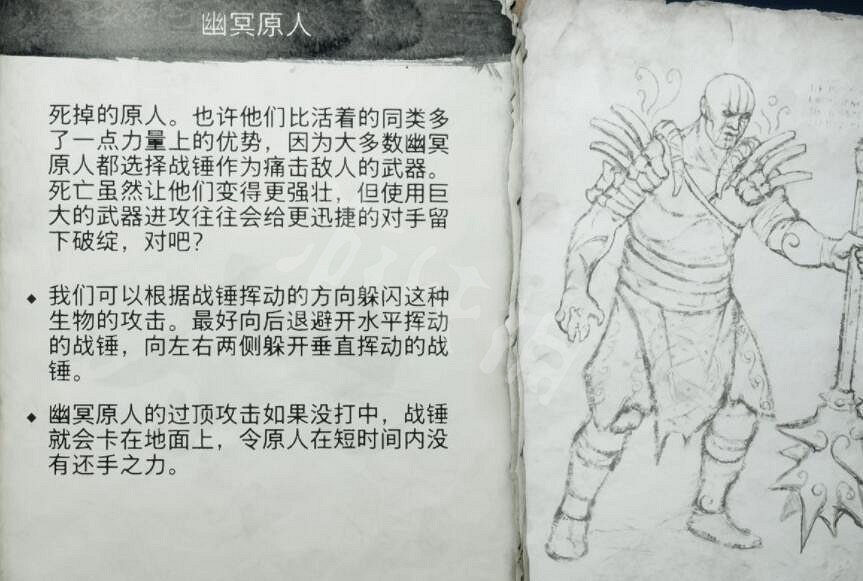 幽冥原人
死掉的原人。也许他们比活着的同类多
了一点力量上的优势，因为大多数幽冥
原人都选择战锤作为痛击敌人的武器。
死亡虽然让他们变得更强壮，但使用巨
大的武器进攻往往会给更迅捷的对手留
下破绽，对吧？
◆ 我们可以根据战锤挥动的方向躲闪这种
生物的攻击。最好向后退避开水平挥动
的战锤，向左右两侧躲开垂直挥动的战
锤。
◆ 幽冥原人的过顶攻击如果没打中，战锤
就会卡在地面上，令原人在短时间内没
有还手之力。